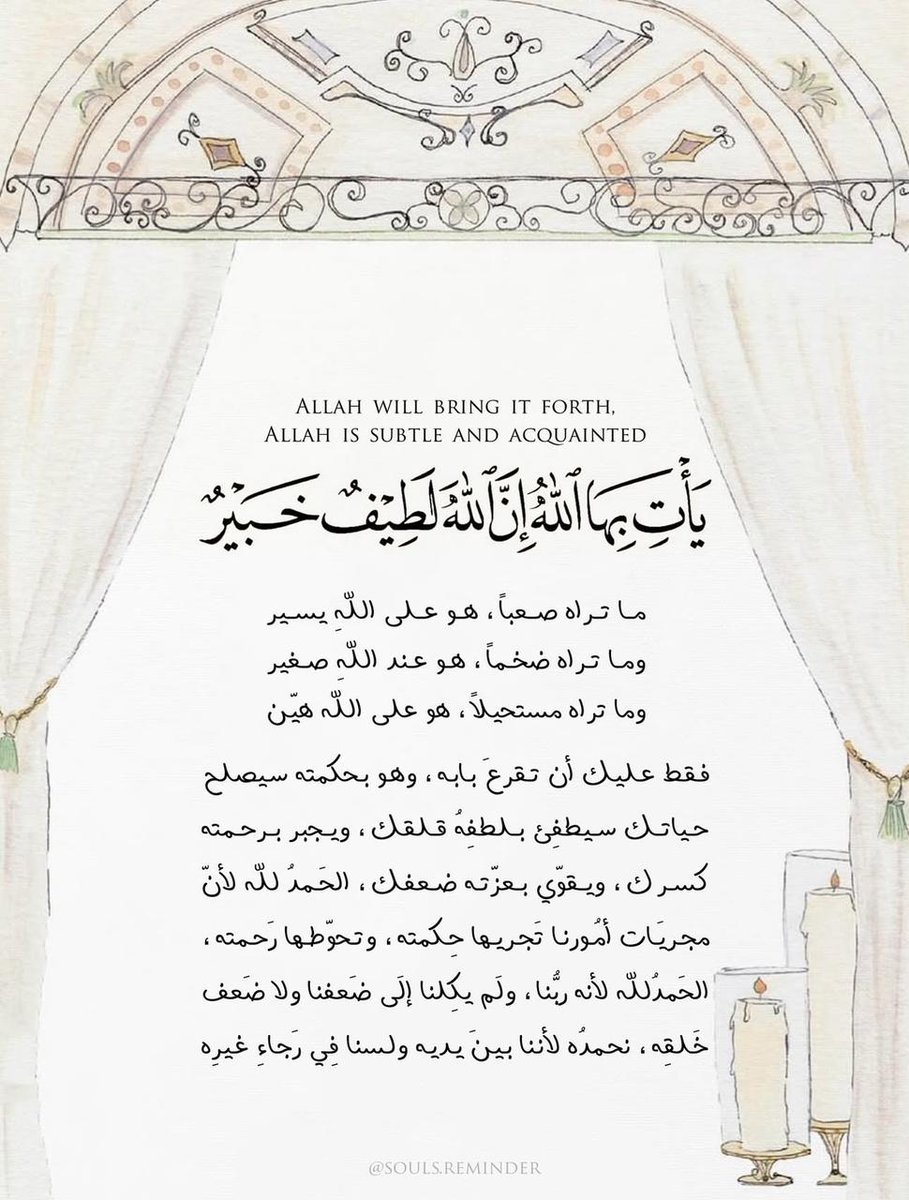 ALLAH WILL BRING IT FORTH,
ALLAH IS SUBTLE AND ACQUAINTED
يَأْتِ بِهَا ٱللَّهُ إِنَّ ٱللَّهَ لَطِيْفٌ خَبِيْرٌ
ما تراه صعباً، هو على اللّهِ يسير
وما تراه ضخماً، هو عند اللّهِ صغير
وما تراه مستحيلاً، هو على اللّه هيّن
فقط عليك أن تقرعَ بابه، وهو بحكمته سيصلح
حياتك سيطفِئ بلطفِهُ قلقك، ويجبر برحمته
كسرك، ويقوّي بعزّته ضعفك، الحَمدُ للّه لأنّ
مجريَات أمُورنا تَجريها حِكمته، وتحوّطها رَحمته،
الحَمدُللّه لأنه ربُّنا، ولَم يكِلنا إلَى ضَعفنا ولا ضَعف
خَلقِه، نحمدُه لأننا بينَ يديه ولسنا فِي رَجاءِ غيرِه
@SOULS.REMINDER